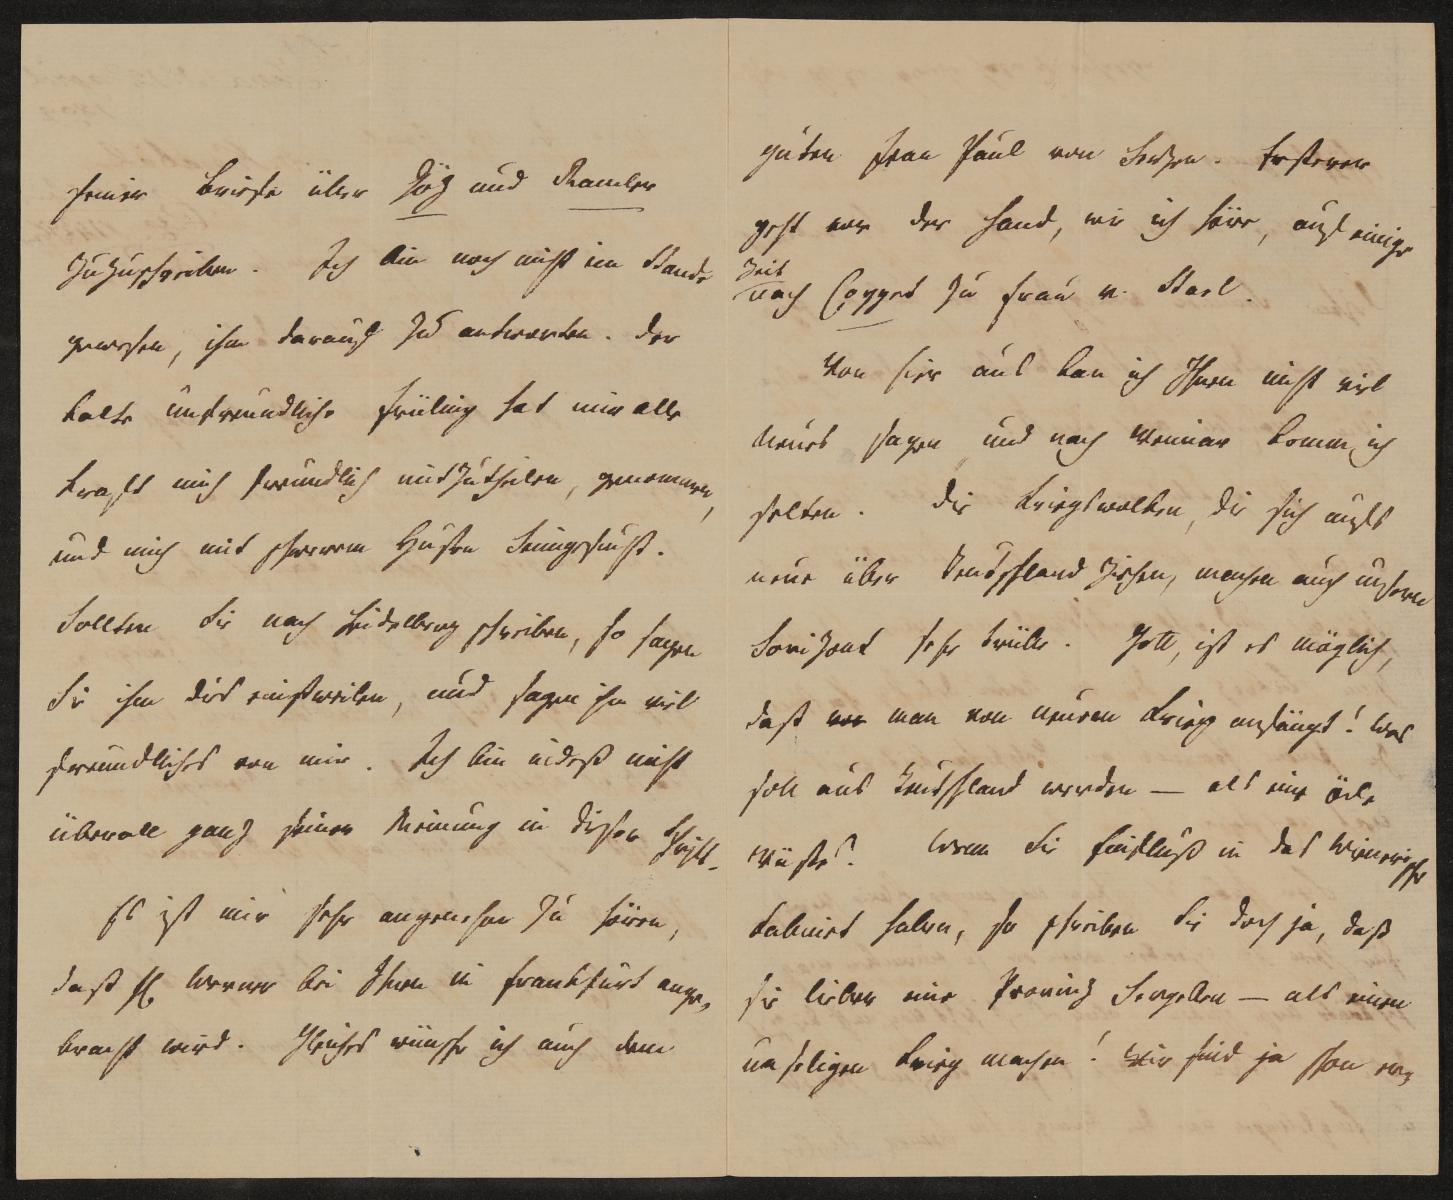 seiner Briefe über Göz und Ramler
zuzuschreiben. Ich bin noch nicht im Stande
gewesen, ihm darauf zu antworten. Der
kalte unfreundliche Früling hat mir alle
Kraft mich freundlich mitzutheilen, genommen,
und mich mit schwerem Husten heimgesucht.
Sollten Sie nach Heidelberg schreiben, so sagen
Sie ihm dies einstweilen, und sagen ihm viel
freundliches von mir. Ich bin indeß nicht
überall ganz seiner Meinung in dieser Schrift.
Es ist mir sehr angenehm zu hören,
daß H. Werner bei Ihnen in Frankfurt ange-
bracht wird. Gleiches wünsche ich auch dem
guten Jean Paul von Herzen. Ersterer
geht vor der Hand, wie ich höre, auf einige
Zeit
nach Coppet zu Frau v. Stael.
Von hier aus kan ich Ihnen nicht viel
Neues sagen und nach Weimar komm ich
selten. Die Kriegswolken, die sich aufs
neue über Deutschland ziehen, machen auch unsern
Horizont sehr trübe. Gott, ist es möglich,
daß man von neuen Krieg anfängt! Was
soll aus Deutschland werden — als eine öde
Wüste? Wenn Sie Einfluß in das Wienerische
Kabinet haben, so schreiben Sie doch ja, daß
sie lieber eine Provinz hergeben — als einen
unseligen Krieg machen! Wir sind ja schon er-